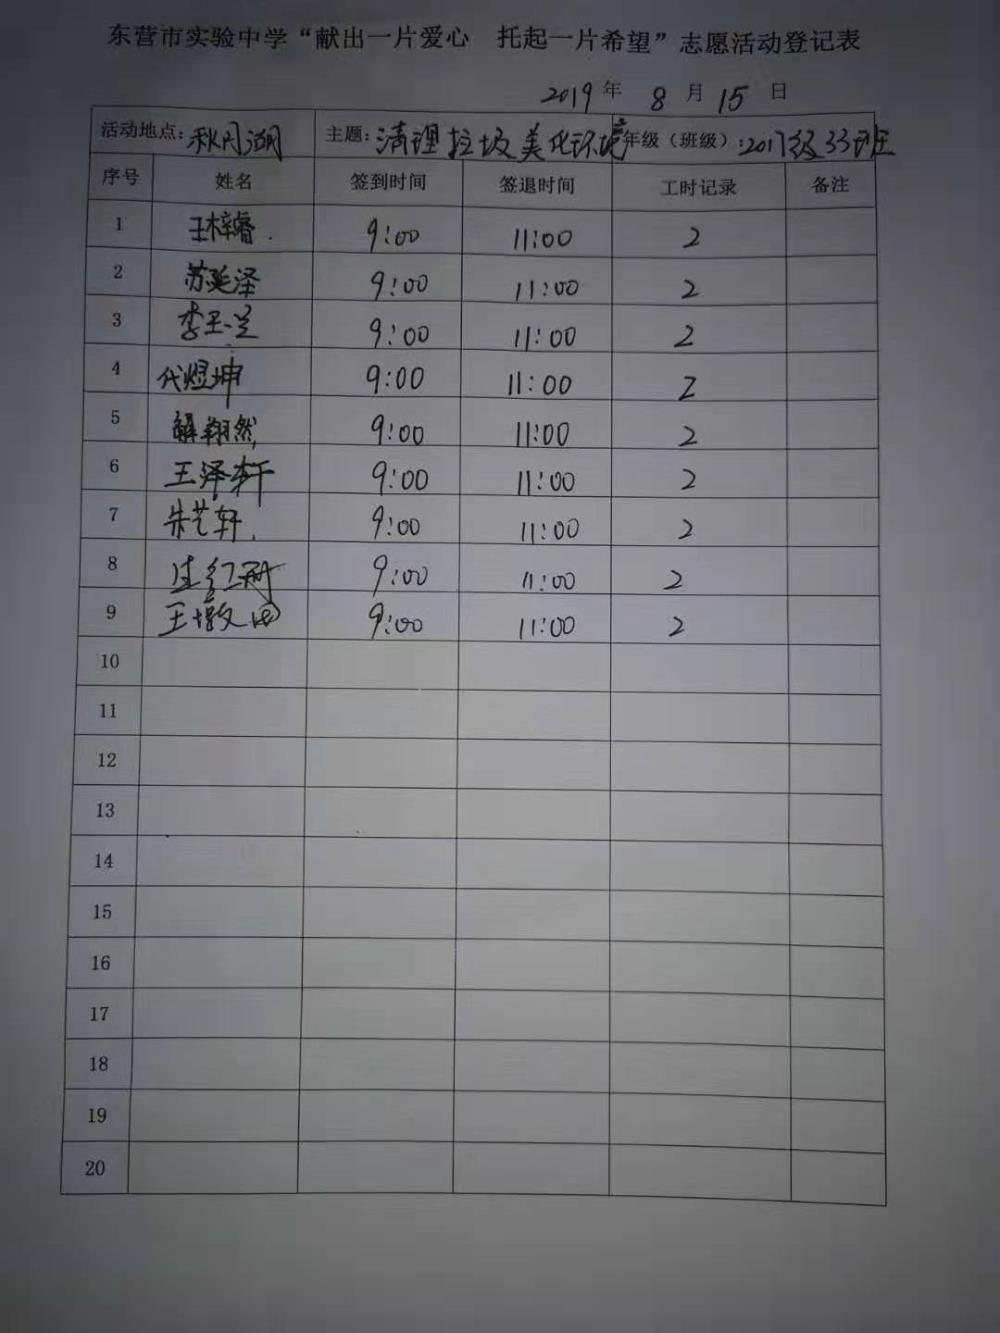 东营市实验中学“献出一片爱心 托起一片希望”志愿活动登记表
2019年 8月15日
活动地点:秋月湖 主题:清理垃圾美化环境 年级(班级):2017级33班
序号 姓名 签到时间 签退时间 工时记录 备注
1 王梓睿 9:00 11:00 2
2 苏延泽 9:00 11:00 2
3 李玉兰 9:00 11:00 2
4 代煜坤 9:00 11:00 2
5 解翔然 9:00 11:00 2
6 王泽轩 9:00 11:00 2
7 朱艺轩 9:00 11:00 2
8 9:00 11:00 2
9 王 9:00 11:00 2
10
11
12
13
14
15
16
17
18
19
20